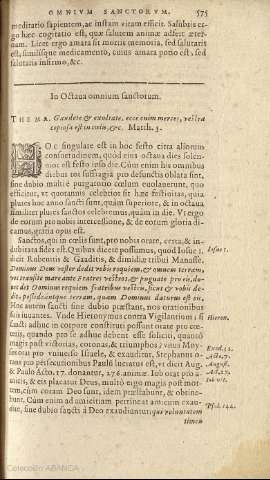 OMNIVM SANCTORVM. 575
meditatio sapientem, ac iustam vitam efficit. Salubris er-
go hæc cogitatio est, quæ salutem animæ adfert æter-
nam. Licet ergo amara sit mortis memoria, sed salutaris
est, similisque medicamento, cuius amara potio est, sed
salutaris infirmo, &c.
In Octaua omnium sanctorum.
THEMA. Gaudete & exultate, ecce enim merces vestra
copiosa est in cœlis, &c. Matth. 5.
HOc singulare est in hoc festo citra aliorum
consuetudinem, quod eius octaua dies solen-
nior est festo ipso die. Cùm enim his omnibus
diebus tot suffragia pro defunctis oblata sint,
sine dubio multæ purgatorio cælum euolauerunt, quo
efficitur, vt quotannis celebrior fit hæc festiuitas, quia
plures hoc anno sancti sunt, quàm superiore, & in octaua
similiter plures sanctos celebremus, quàm in die. Vt ergo
de eorum pro nobis intercessione, & de eorum gloria di-
camus, gratia opus est.
Sancti, qui in cælis sunt, pro nobis orare, certa, & in-
dubitata fides est. Quibus dicere possumus, quod Iosue 1.
dicit Rubenitis & Gaaditis, & dimidiæ tribui Manasse.
Dominus Deus vester dedit vobis requiem, & omnem terram,
vos transite ante fratres vestros, & pugnate pro eis, do-
nec det Dominus requiem fratribus vestris, sicut & vobis de-
dit, & possideant ipsi terram, quam Dominus daturus est eis.
Hoc autem sancti sine dubio præstant, nos orationibus
suis iuuantes. Vnde Hieronymus contra Vigilantium: si
sancti adhuc in corpore constituti possunt orare pro cæte-
ris, quando pro se adhuc debent esse soliciti, quantò
magis post victorias, coronas, & triumphos? vnus Moy-
ses orat pro vniuerso Israele, & exauditur, Stephanus o-
rans pro persecutoribus Paulum lucratus est, vt dicit Aug.
& Paulo Act. 27. donantur 276. animæ. Iob orat pro a-
micis, & eis placatur Deus, multò ergo magis post mor-
tem, cùm coram Deo sunt, idem præstabunt, & obtine-
bunt. Cùm enim ad amicitiam pertineat amicum exau-
dire, sine dubio sancti à Deo exaudiuntur, qui voluntatem
timen
Iosue 1.
Hieron.
Exod. 32.
Act. 7.
August.
Act. 27.
Iob vlt.
Psal. 144.
Colección ABANCA